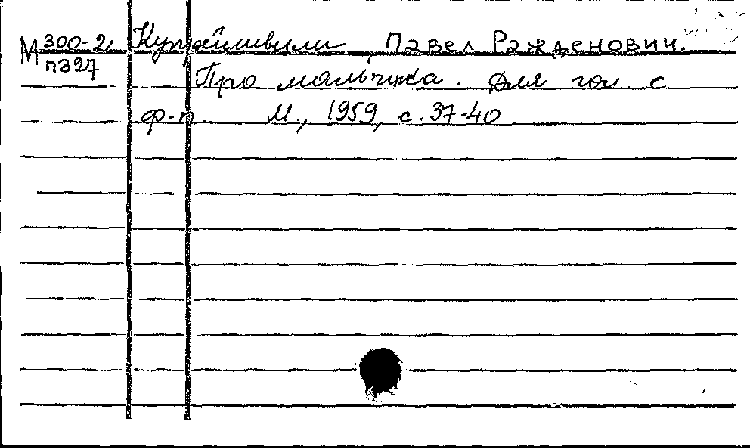 М 300-2 Купрейшвили, Павел Ражденович.
п327 Про мальчика. Для гол. с
ф-п. М., 1959, с. 37-40